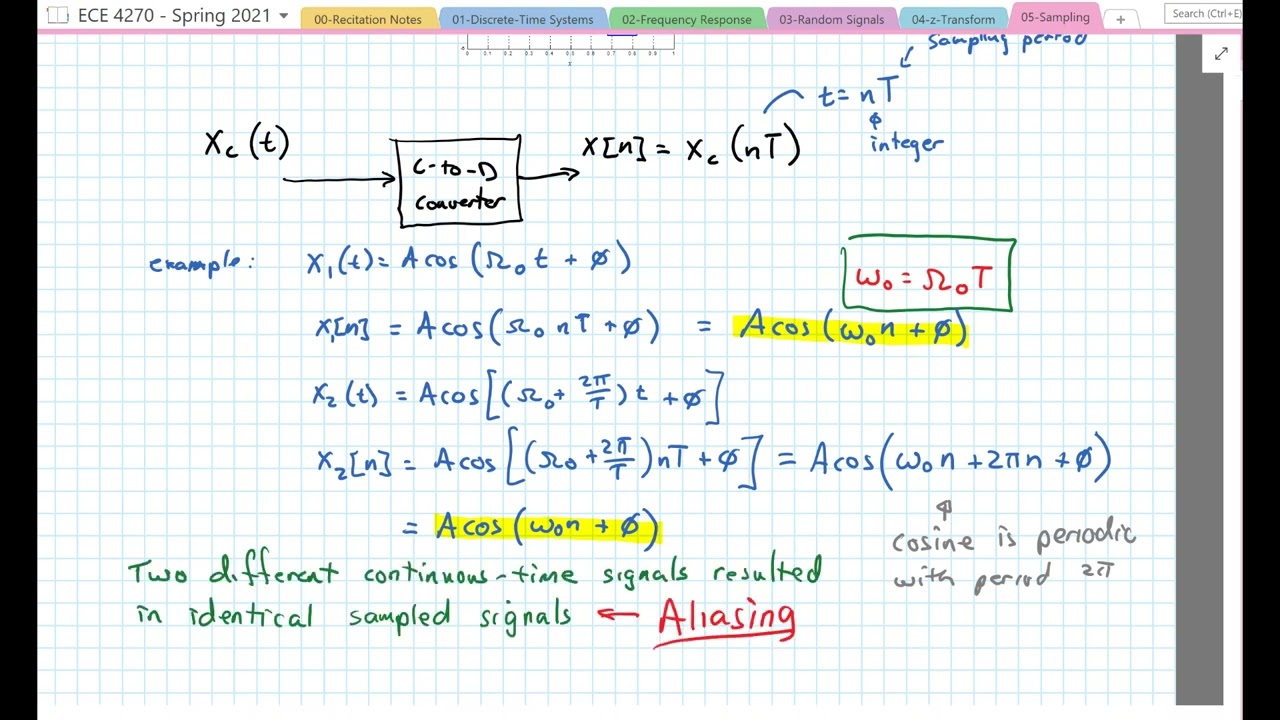 ECE 4270 - Spring 2021
00-Recitation Notes 01-Discrete-Time Systems 02-Frequency Response 03-Random Signals 04-z-Transform 05-Sampling +
Search (Ctrl+E)
0 0.1 0.2 0.3 0.4 0.5 0.6 0.7 0.8 0.9 1
sampling period
t = nT
integer
Xc(t)
C-to-D
converter
X[n] = Xc(nT)
example: X₁(t) = A cos(Ω₀t + ϕ)
ω₀ = Ω₀T
X₁[n] = A cos(Ω₀nT + ϕ) = A cos(ω₀n + ϕ)
X₂(t) = A cos[(Ω₀ + 2π/T)t + ϕ]
X₂[n] = A cos[(Ω₀ + 2π/T)nT + ϕ] = A cos(ω₀n + 2πn + ϕ)
= A cos(ω₀n + ϕ)
cosine is periodic
with period 2π
Two different continuous-time signals resulted
in identical sampled signals ← Aliasing